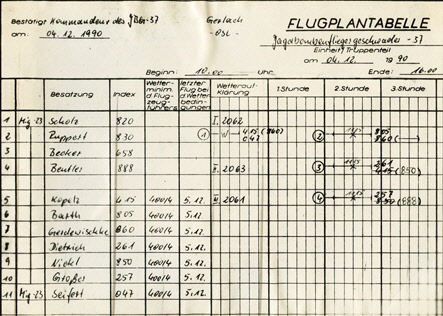 Bestätigt Kommandeur des JBG-37 Gerlach FLUGPLANTABELLE
am: 04.12.1990 OSL Jagdbombenfliegergeschwader-37
Einheit/Truppenteil
am 04.12. 1990
Beginn: 10.00 Uhr Ende: 16.00
Besatzung Index Wetter-minim. d. Flug-zeug-führers letzter Flug bei d. Wetter-bedin-gungen Wetterauf-klärung 1. Stunde 2. Stunde 3. Stunde
1 Mig-23 Scholz 820 I. 2062
2 Ruppert 830 1 W 415 (860) 2 1115 805
047 860 (
3 Becker 658
4 Beutler 888 2063 3 1115 261
415 (850)
5 Kopelz 415 400/4 5.12. 2061 4 1115 257
(888)
6 Barth 805 400/4 5.12.
7 860 400/4 5.12.
8 Dietrich 261 400/4 5.12.
9 Nickl 850 400/4 5.12.
10 Großer 257 400/4 5.12.
11 Mig-23 Seifert 047 400/4 5.12.